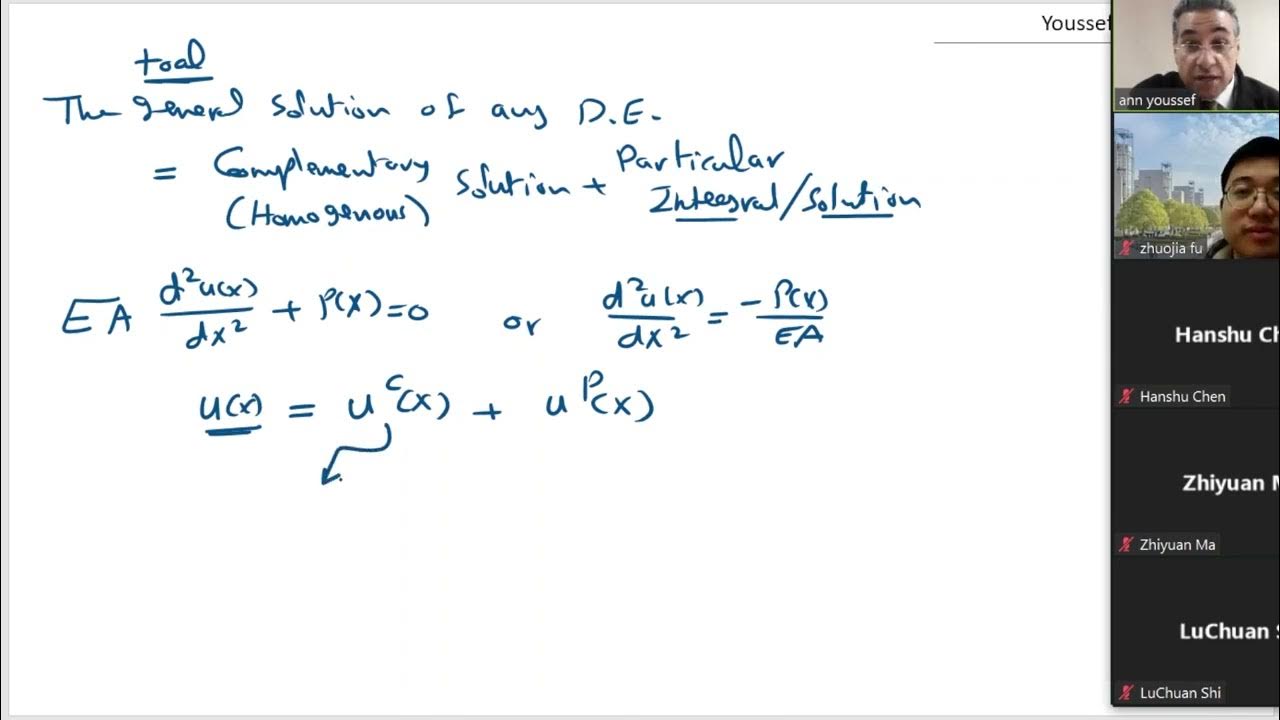 Youssef
toal
The general solution of any D.E.
= Complementary (Homogenous) Solution + Particular Integral/Solution
EA d²u(x)/dx² + P(x) = 0 or d²u(x)/dx² = -P(x)/EA
u(x) = u^c(x) + u^p(x)
ann youssef
zhuojia fu
Hanshu Ch
Hanshu Chen
Zhiyuan M
Zhiyuan Ma
LuChuan S
LuChuan Shi